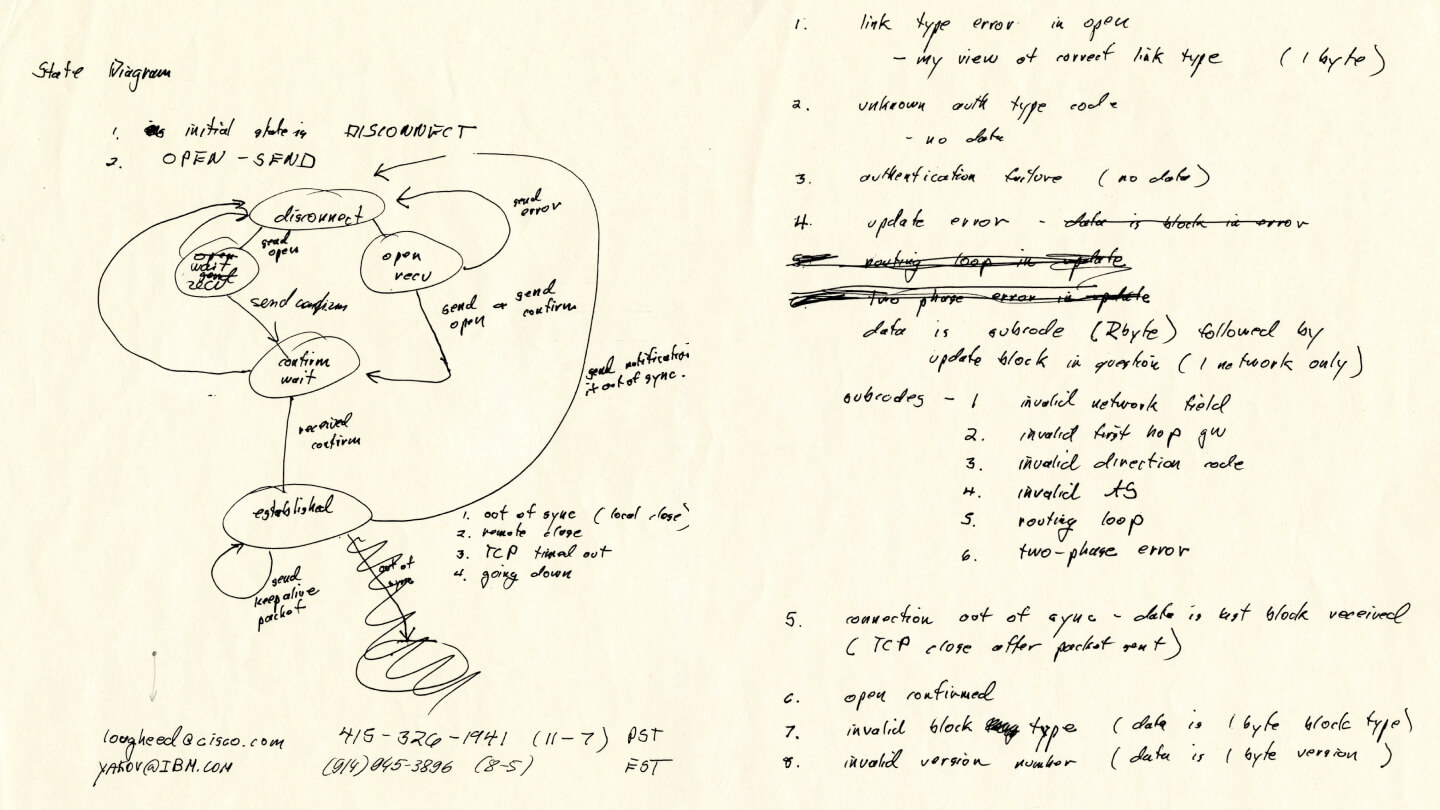 State Diagram
1. initial state is DISCONNECT
2. OPEN - SEND
disconnect
send
open
send
error
open
wait
send
recv
open
recv
send confirm
send
open
or send
confirm
confirm
wait
send notification
if out of sync.
received
confirm
established
1. out of sync (local close)
2. remote close
3. TCP timed out
4. going down
out of
sync
send
keepalive
packet
lougheed@cisco.com 415-326-1941 (11-7) PST
YAKOV@IBM.COM (914) 945-3896 (8-5) EST
1. link type error in open
- my view of correct link type (1 byte)
2. unknown auth type code
- no data
3. authentication failure (no data)
4. update error - data is block in error
5. routing loop in update
two phase error in update
data is subcode (2byte) followed by
update block in question (1 network only)
subcodes - 1 invalid network field
2. invalid first hop gw
3. invalid direction code
4. invalid AS
5. routing loop
6. two-phase error
5. connection out of sync - data is last block received
(TCP close after packet sent)
6. open confirmed
7. invalid block type (data is 1 byte block type)
8. invalid version number (data is 1 byte version)